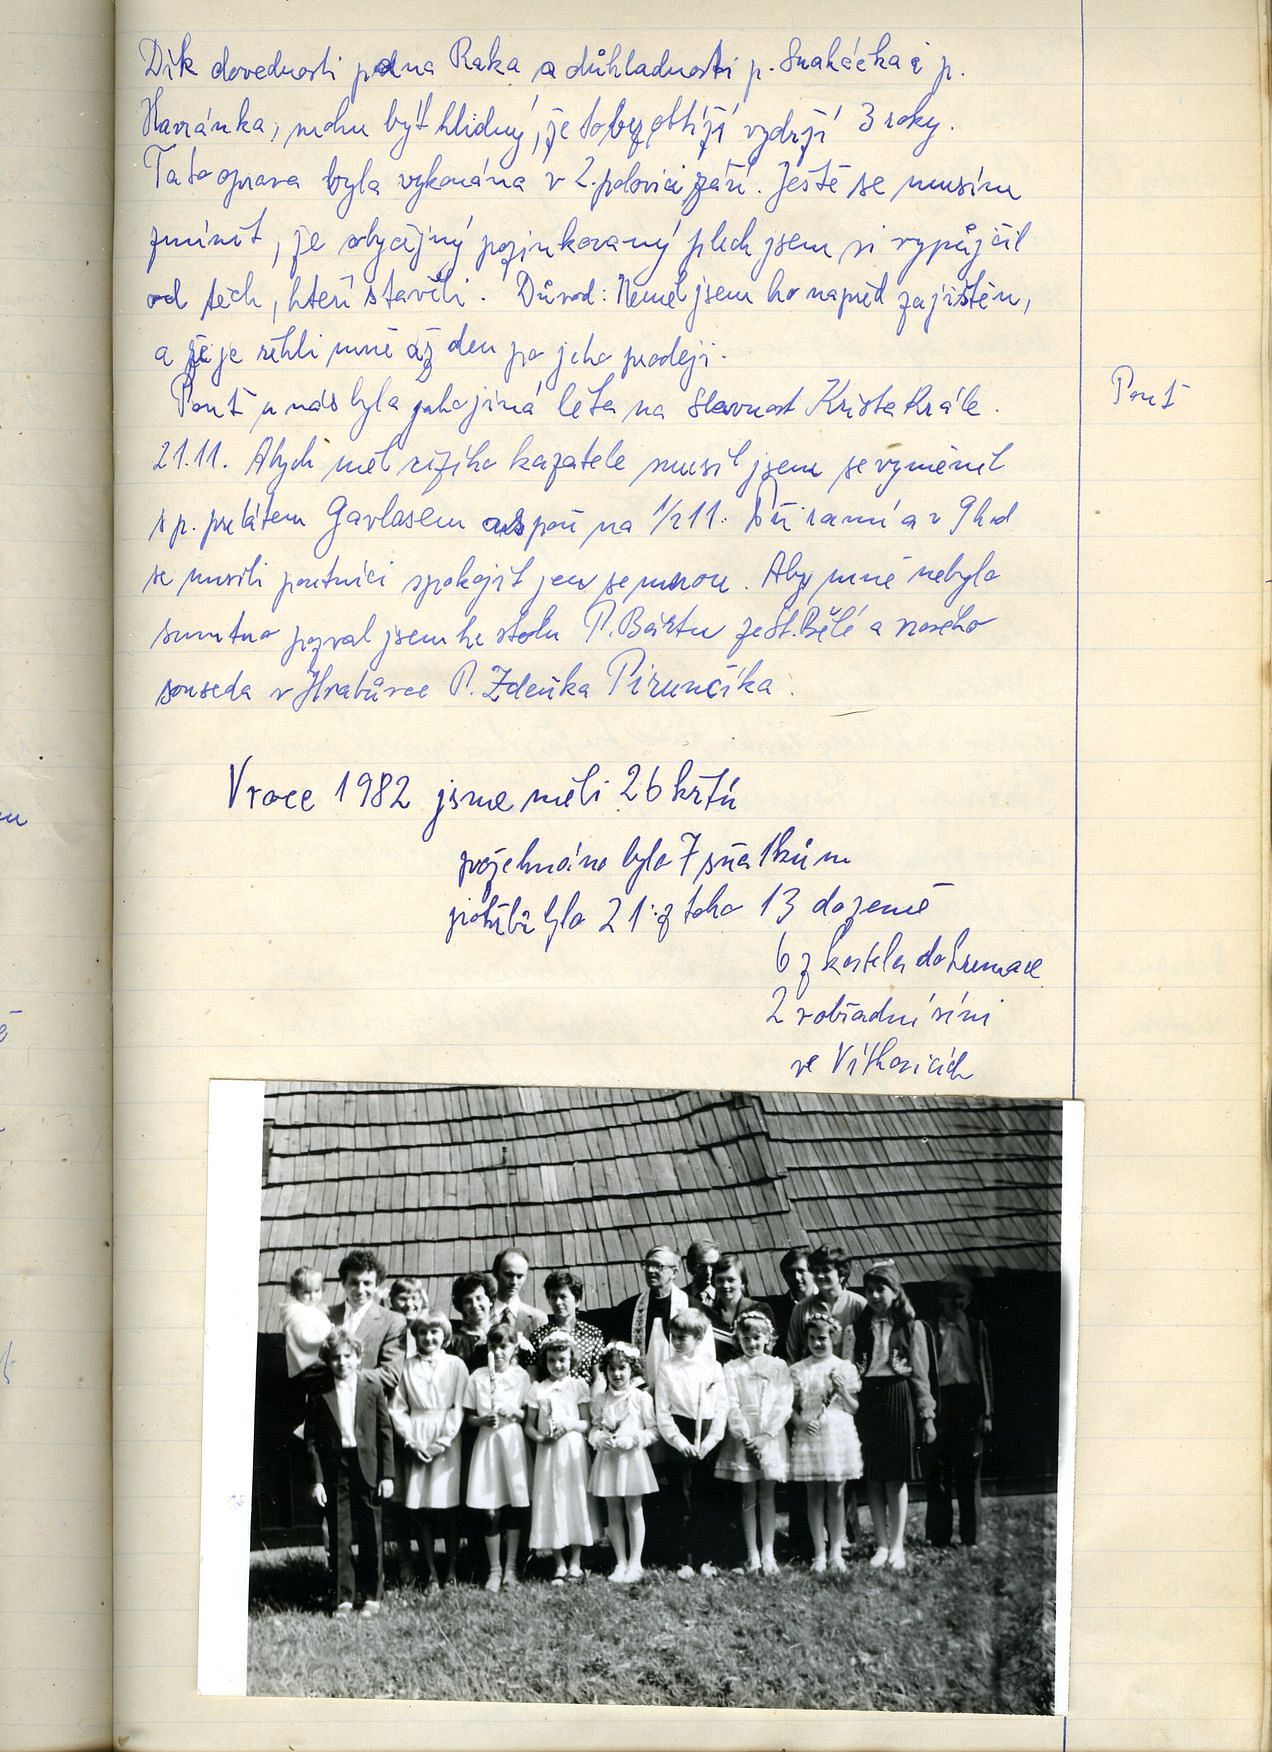 Dík dovednosti pana Raka a důkladnosti p. a p.
Havránka, mohu být klidný, že to bez obtíží vydrží 3 roky.
Tato oprava byla vykonána v 2. polovici září. Ještě se musím
zmínit, že obyčejný pozinkovaný plech jsem si vypůjčil
od těch, kteří stavěli. Důvod: Neměl jsem ho napřed zajištěn,
a že je řekli mně až den po jeho prodeji.
Pouť u nás byla jako jiná léta na Slavnost Krista Krále.
Pouť
21.11. Abych měl cizího kazatele musil jsem se vyměnit
s p. prelátem Gavlasem aspoň na 1/2 11. Při ranní a v 9 hod
se musili poutníci spokojit jen se mnou. Aby mně nebylo
smutno pozval jsem ke stolu P. Bártu ze St. Bělé a nového
souseda v Hrabůvce P. Zdeňka Pirunčíka.
V roce 1982 jsme měli 26 křtů
požehnáno bylo 7 sňatkům
pohřbů bylo 21: z toho 13 do země
6 z kostela do kremace
2 v obřadní síni
ve Vítkovicích